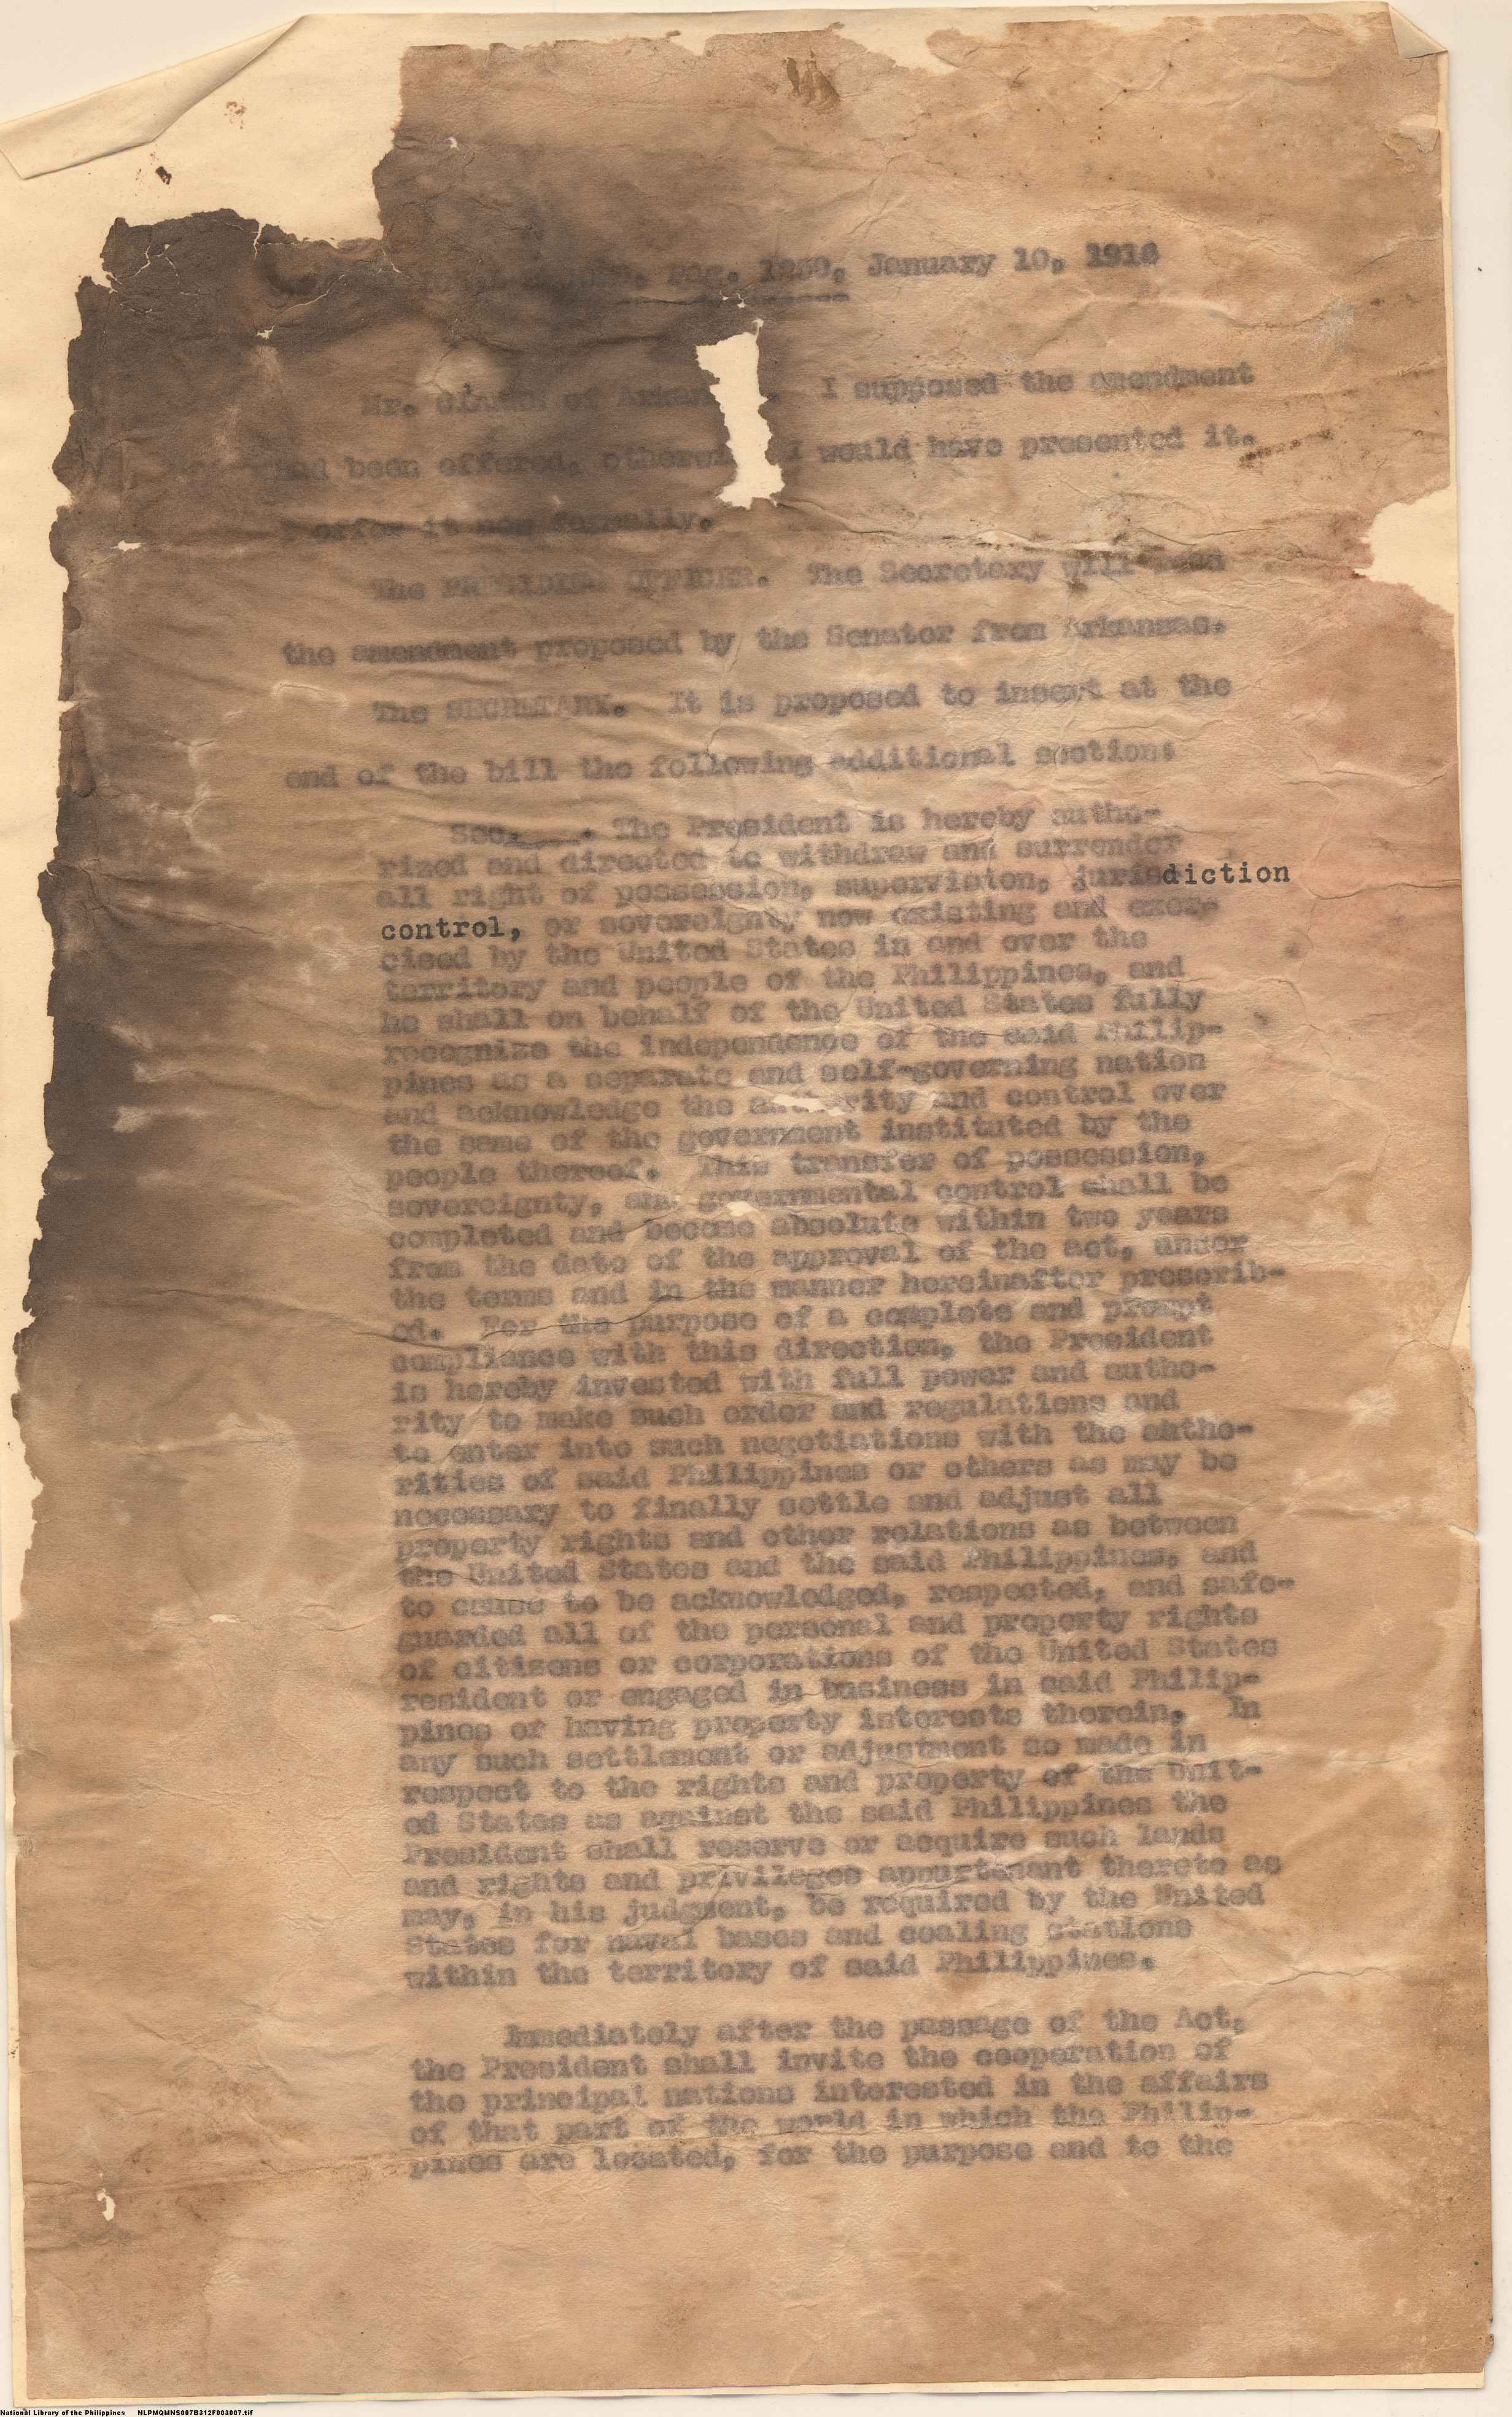 Pag. 1250, January 10, 1916
Mr. CLARKE of Arkan . I supposed the amendment
had been offered, otherwi I would have presented it.
I offer it now formally.
The PRESIDING OFFICER. The Secretary will read
the amendment proposed by the Senator from Arkansas.
The SECRETARY. It is proposed to insert at the
end of the bill the following additional section:
Sec.____. The President is hereby autho-
rized and directed to withdraw and surrender
all right of possession, supervision, jurisdiction
control, or sovereignty now existing and exer-
cised by the United States in and over the
territory and people of the Philippines, and
he shall on behalf of the United States fully
recognize the independence of the said Philip-
pines as a separate and self-governing nation
and acknowledge the authority and control over
the same of the government instituted by the
people thereof. This transfer of possession,
sovereignty, and governmental control shall be
completed and become absolute within two years
from the date of the approval of the act, under
the terms and in the manner hereinafter prescrib-
ed. For the purpose of a complete and prompt
compliance with this direction, the President
is hereby invested with full power and autho-
rity to make such order and regulations and
to enter into such negotiations with the autho-
rities of said Philippines or others as may be
necessary to finally settle and adjust all
property rights and other relations as between
the United States and the said Philippines, and
to cause to be acknowledged, respected, and safe-
guarded all of the personal and property rights
of citizens or corporations of the United States
resident or engaged in business in said Philip-
pines or having property interests therein. In
any such settlement or adjustment so made in
respect to the rights and property of the Unit-
ed States as against the said Philippines the
President shall reserve or acquire such lands
and rights and privileges appurtenant thereto as
may, in his judgment, be required by the United
States for naval bases and coaling stations
within the territory of said Philippines.
Immediately after the passage of the Act,
the President shall invite the cooperation of
the principal nations interested in the affairs
of that part of the world in which the Philip-
pines are located, for the purpose and to the
National Library of the Philippines NLPMQMNS007B312F003007.tif